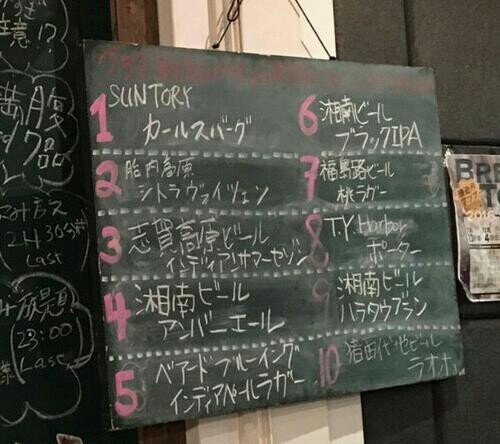 1 SUNTORY
カールスバーグ
2 胎内高原
シトラヴァイツェン
3 志賀高原ビール
インディアンサマーセゾン
4 湘南ビール
アンバーエール
5 ベアードブルーイング
インディアペールラガー
6 湘南ビール
ブラックIPA
7 福島路ビール
桃ラガー
8 T.Y. Harbor
ポーター
9 湘南ビール
ハラタウブラン
10 猪苗代地ビール
ラオホ
意!?
満腹
24:30
Last
み放題
23:00
Last